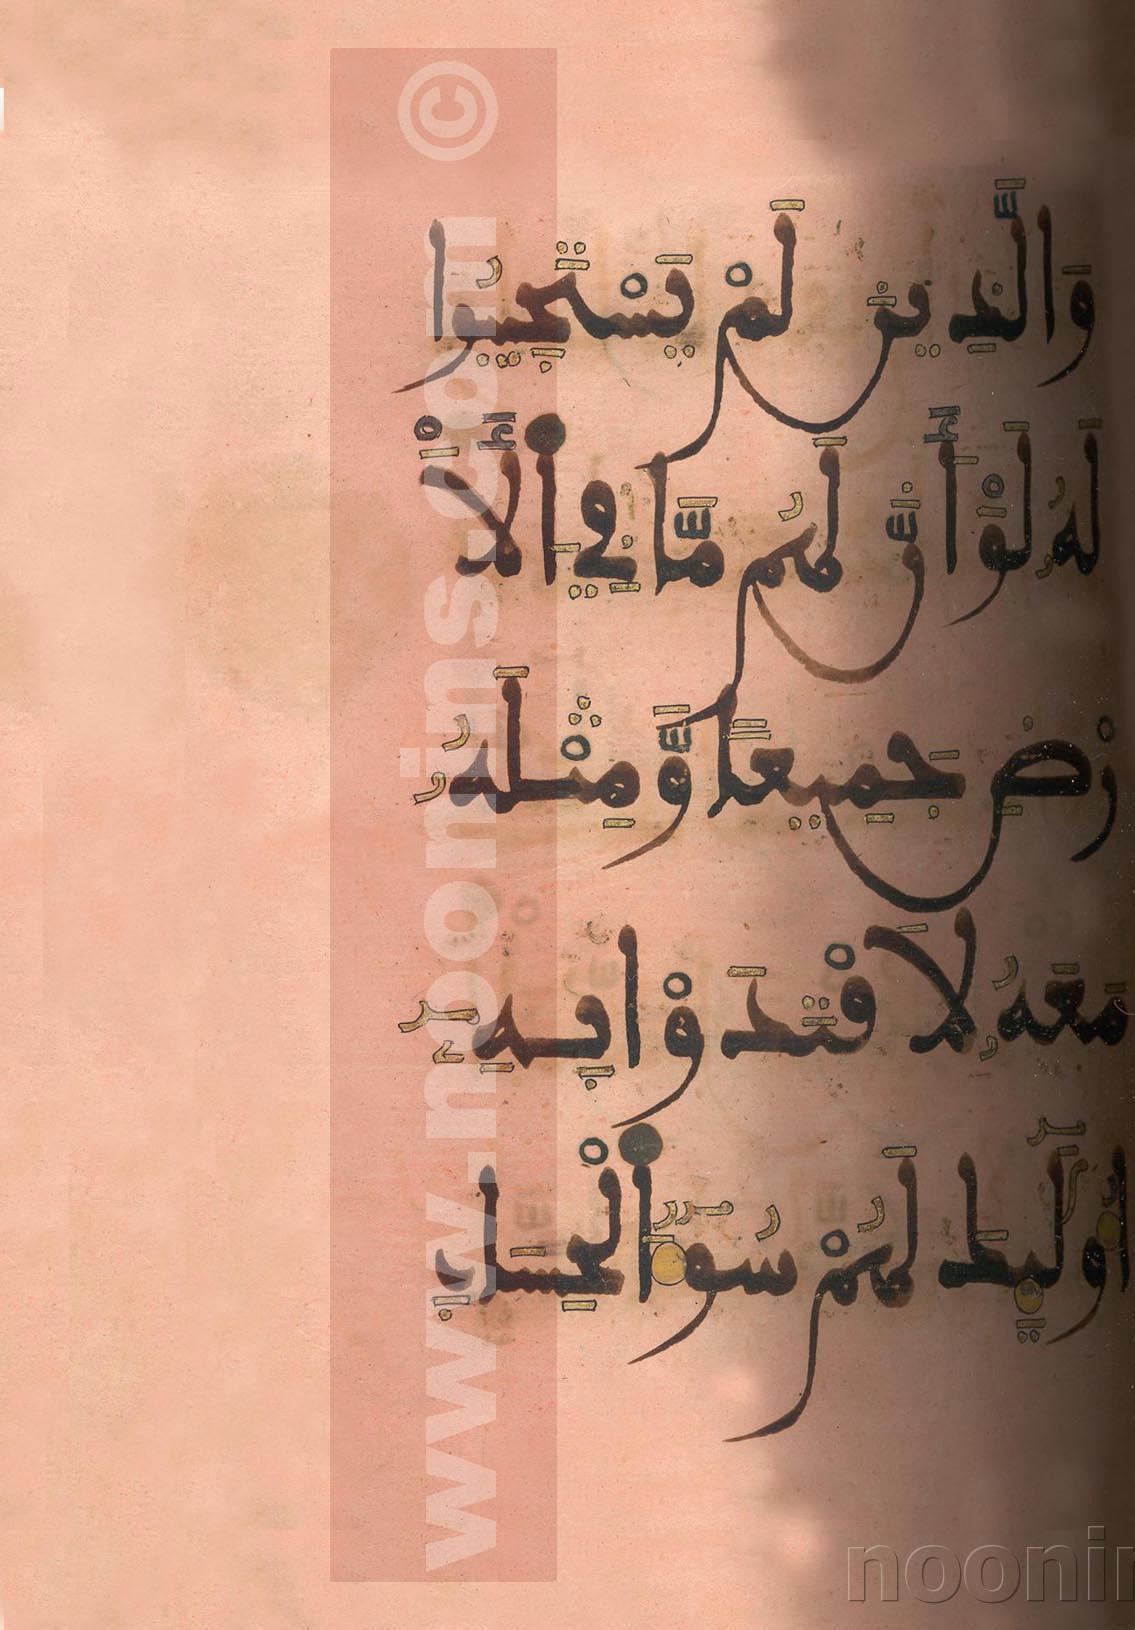 وَالَّذِينَ لَمْ يَسْتَجِيبُوا
لَهُ لَوْ أَنَّ لَهُم مَّا فِي الْأَ
رْضِ جَمِيعًا وَّمِثْلَهُ
مَعَهُ لَافْتَدَوْا بِهِ
أُولَٰئِكَ لَهُمْ سُوءُ الْحِسَابِ
www.noonins.com ©
noonin